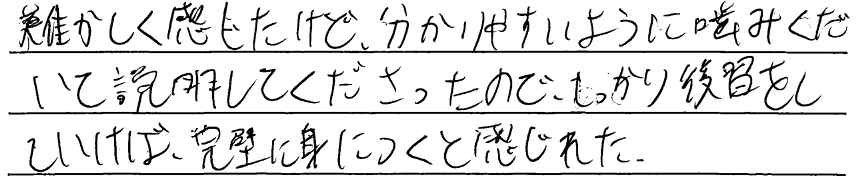 難かしく感じたけど、分かりやすいように噛みくだ
いて説明してくださったので、しっかり後習をし
ていけば、完璧に身につくと感じれた.